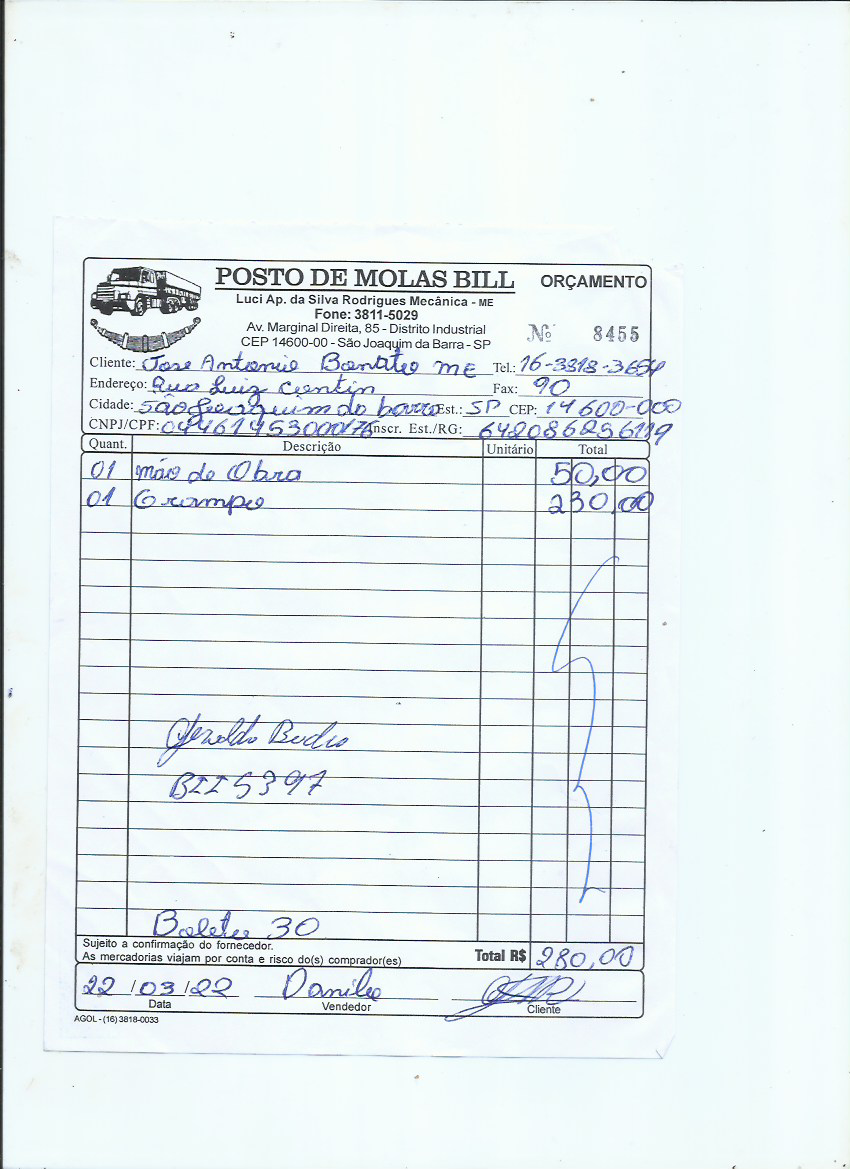 POSTO DE MOLAS BILL
ORÇAMENTO
Luci Ap. da Silva Rodrigues Mecânica - ME
Fone: 3811-5029
Av. Marginal Direita, 85 - Distrito Industrial
CEP 14600-00 - São Joaquim da Barra - SP
Nº 8455
Cliente: Jose Antonio ME Tel.: 16-3818-3654
Endereço: Rua Luiz Fax: 90
Cidade: São Joaquim da barra Est.: SP CEP: 14600-000
CNPJ/CPF: 04461453000176 Inscr. Est./RG: 642086256119
Quant. Descrição Unitário Total
01 mão de Obra 50,00
01 Grampo 230,00
BII 5397
30
Sujeito a confirmação do fornecedor.
As mercadorias viajam por conta e risco do(s) comprador(es)
Total R$ 280,00
22/03/22 Danilo
Data Vendedor Cliente
AGOL - (16) 3818-0033